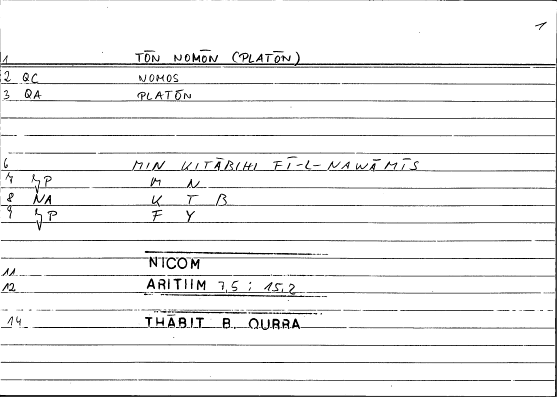 1
1 TŌN NOMŌN (PLATŌN)
2 QC NOMOS
3 QA PLATŌN
6 MIN KITĀBIHI FĪ-L-NAWĀMĪS
7 P M N
8 NA K T B
9 P F Y
NICOM
11
12 ARITIIM 7,5 ; 15,2
14 THĀBIT B. QURRA